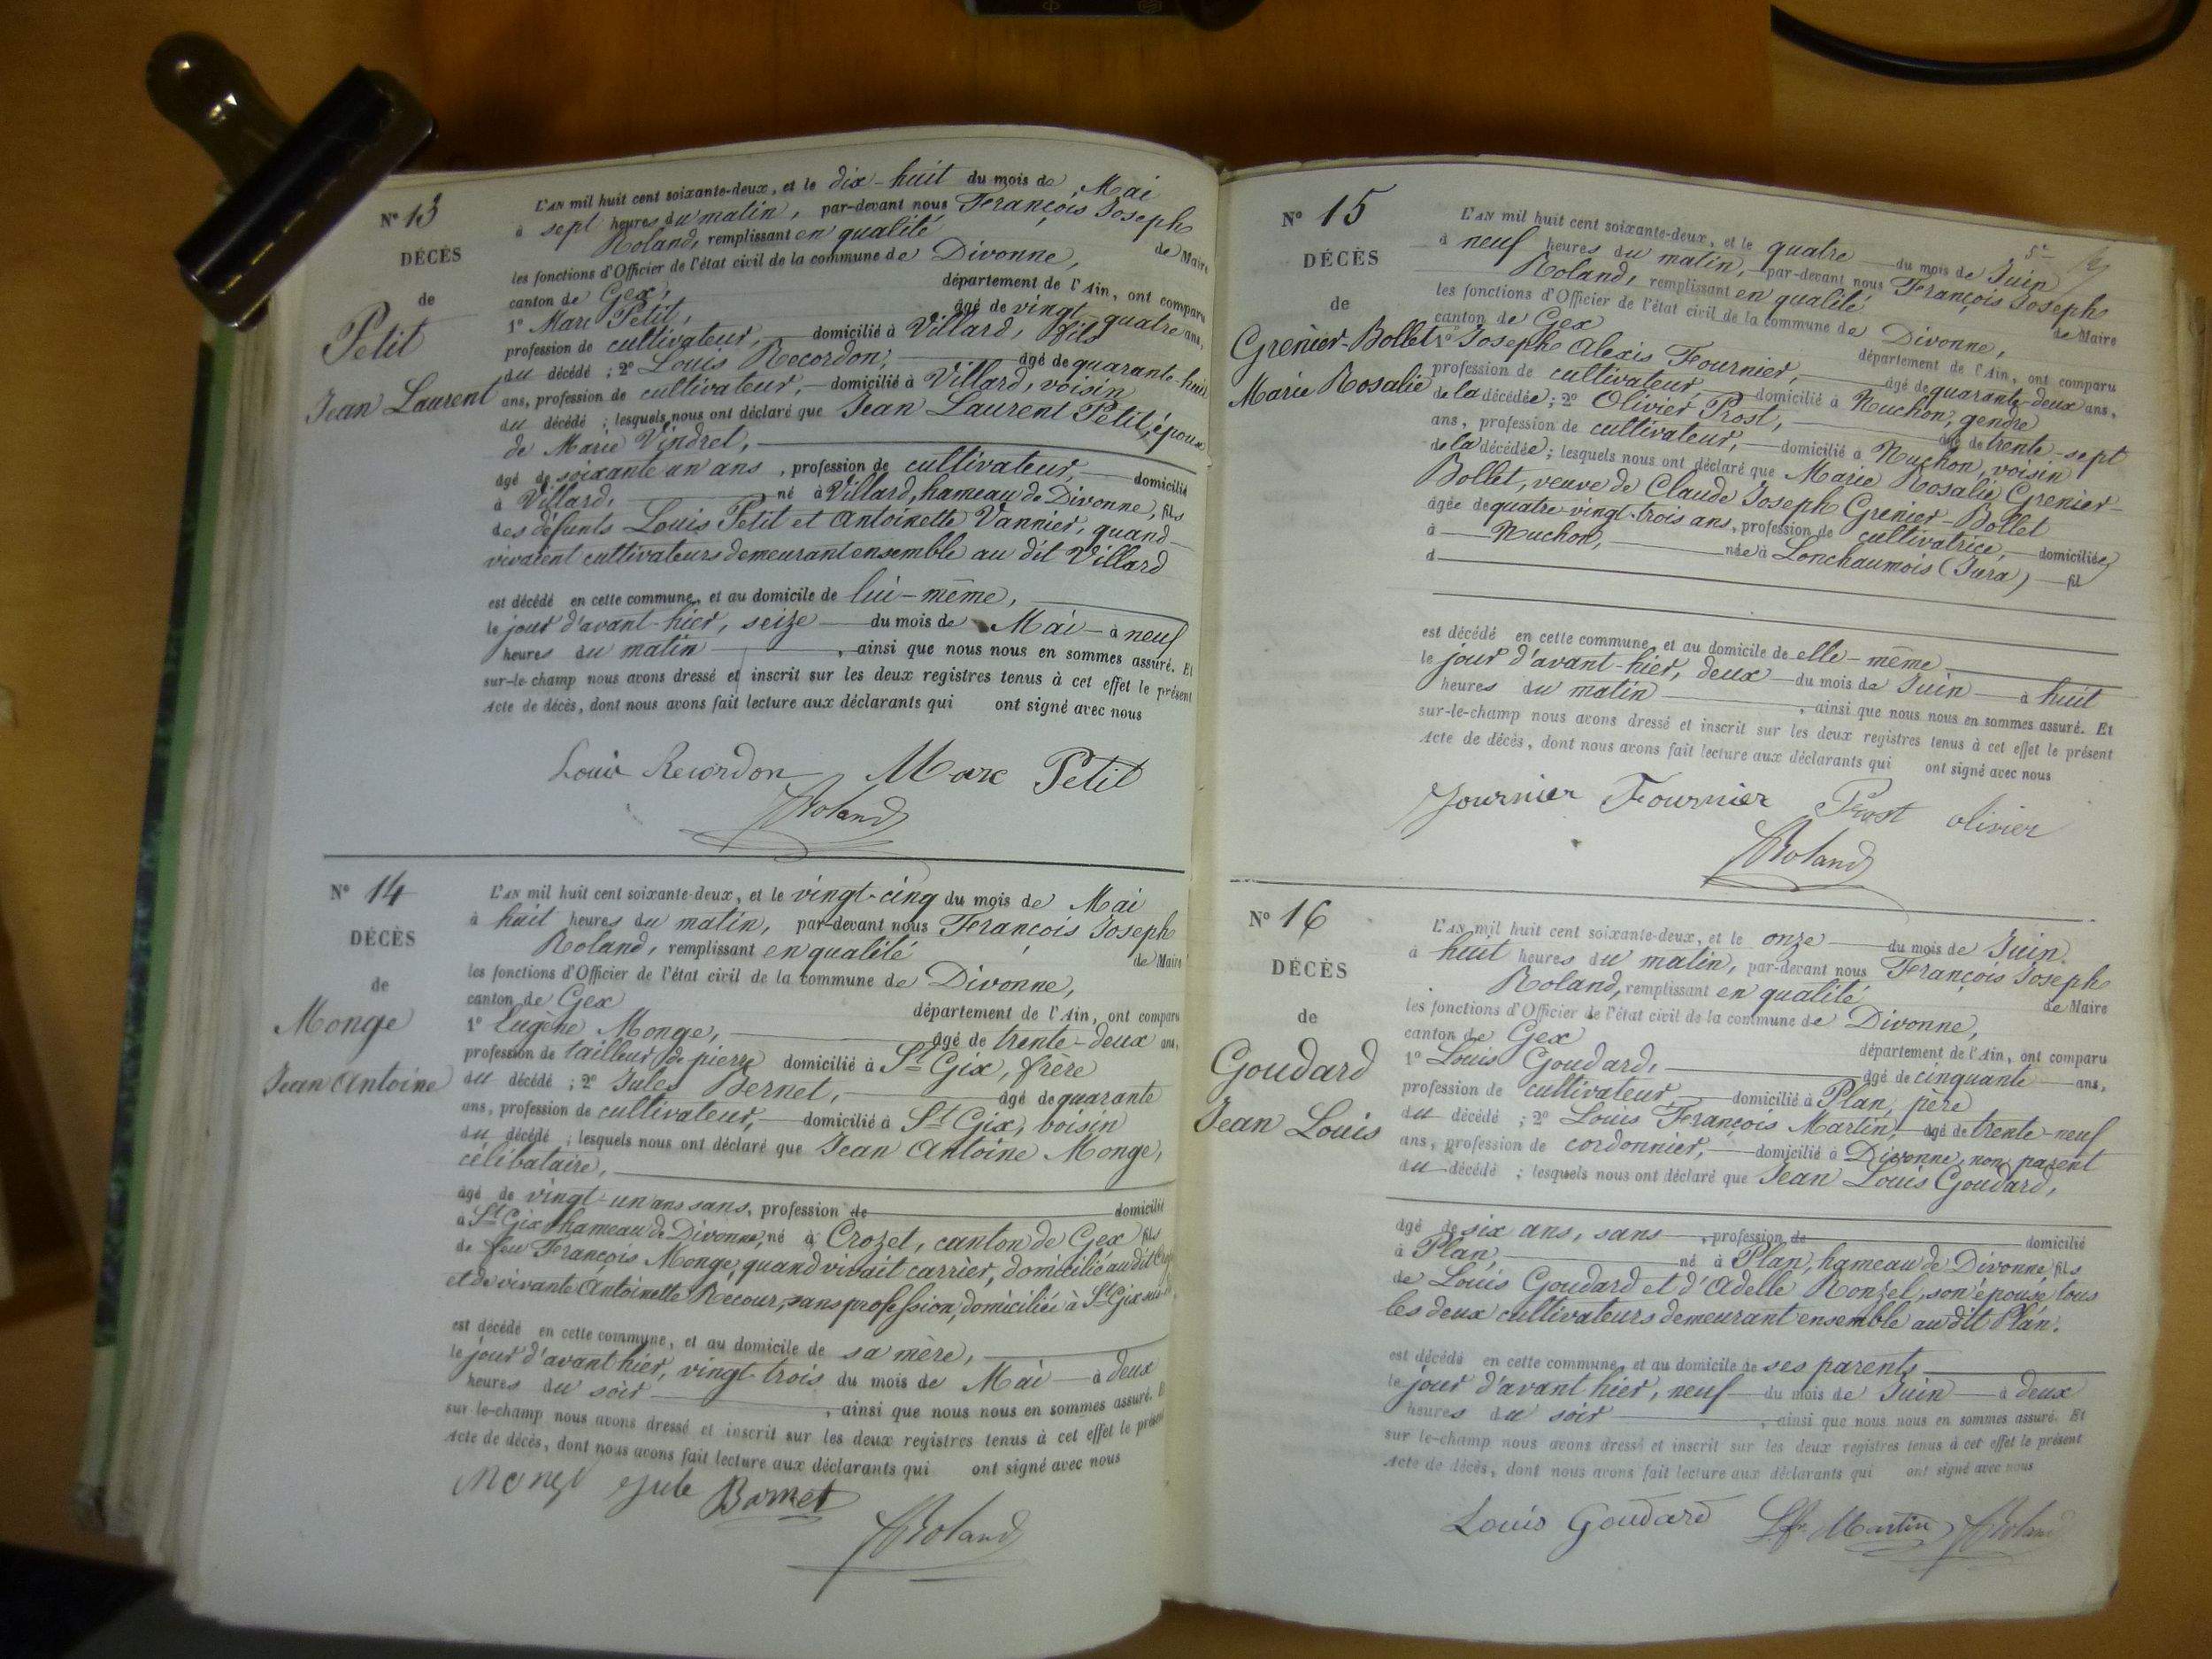 N° 13
DÉCÈS
de
Petit
Jean Laurent
L'AN mil huit cent soixante-deux, et le dix-huit du mois de Mai
à sept heures du matin, par-devant nous François Joseph
Roland, remplissant en qualité de Maire
les fonctions d'Officier de l'état civil de la commune de Divonne,
canton de Gex, département de l'Ain, ont comparu
1° Marc Petit, âgé de vingt-quatre ans,
profession de cultivateur, domicilié à Villard, fils
du décédé ; 2° Louis Recordon, âgé de quarante-huit
ans, profession de cultivateur, domicilié à Villard, voisin
du décédé ; lesquels nous ont déclaré que Jean Laurent Petit, époux
de Marie Vindret,
âgé de soixante un ans, profession de cultivateur, domicilié
à Villard, né à Villard, hameau de Divonne, fils
des défunts Louis Petit et Antoinette Vannier, quand
vivaient cultivateurs demeurant ensemble au dit Villard
est décédé en cette commune, et au domicile de lui-même,
le jour d'avant-hier, seize du mois de Mai à neuf
heures du matin, ainsi que nous nous en sommes assuré. Et
sur-le-champ nous avons dressé et inscrit sur les deux registres tenus à cet effet le présent
Acte de décès, dont nous avons fait lecture aux déclarants qui ont signé avec nous
Louis Recordon Marc Petit
Roland
N° 14
DÉCÈS
de
Monge
Jean Antoine
L'AN mil huit cent soixante-deux, et le vingt-cinq du mois de Mai
à huit heures du matin, par-devant nous François Joseph
Roland, remplissant en qualité de Maire
les fonctions d'Officier de l'état civil de la commune de Divonne,
canton de Gex département de l'Ain, ont comparu
1° Eugène Monge, âgé de trente-deux ans,
profession de tailleur de pierre domicilié à St Gix, frère
du décédé ; 2° Jules Bernet, âgé de quarante
ans, profession de cultivateur, domicilié à St Gix, voisin
du décédé ; lesquels nous ont déclaré que Jean Antoine Monge,
célibataire,
âgé de vingt-un ans sans, profession de domicilié
à St Gix hameau de Divonne, né à Crozet, canton de Gex fils
de feu François Monge, quand vivait carrier, domicilié au dit
et de vivante Antoinette Recour, sans profession, domiciliée à St Gix
est décédé en cette commune, et au domicile de sa mère,
le jour d'avant hier, vingt trois du mois de Mai à deux
heures du soir, ainsi que nous nous en sommes assuré.
sur-le-champ nous avons dressé et inscrit sur les deux registres tenus à cet effet le présent
Acte de décès, dont nous avons fait lecture aux déclarants qui ont signé avec nous
Monge Jule Bornet
Roland
5e
N° 15
DÉCÈS
de
Grenier-Bollet
Marie Rosalie
L'AN mil huit cent soixante-deux, et le quatre du mois de Juin
à neuf heures du matin, par-devant nous François Joseph
Roland, remplissant en qualité de Maire
les fonctions d'Officier de l'état civil de la commune de Divonne,
canton de Gex département de l'Ain, ont comparu
1° Joseph Alexis Fournier, âgé de quarante-deux ans,
profession de cultivateur, domicilié à Nuchon, gendre
de la décédée ; 2° Olivier Prost, âgé de trente-sept
ans, profession de cultivateur, domicilié à Nuchon, voisin
de la décédée ; lesquels nous ont déclaré que Marie Rosalie Grenier-
Bollet, veuve de Claude Joseph Grenier-Bollet
âgée de quatre-vingt-trois ans, profession de cultivatrice, domiciliée
à Nuchon, née à Lonchaumois (Jura) fil
d
est décédé en cette commune, et au domicile de elle-même
le jour d'avant-hier, deux du mois de Juin à huit
heures du matin, ainsi que nous nous en sommes assuré. Et
sur-le-champ nous avons dressé et inscrit sur les deux registres tenus à cet effet le présent
Acte de décès, dont nous avons fait lecture aux déclarants qui ont signé avec nous
Journier Fournier Prost olivier
Roland
N° 16
DÉCÈS
de
Goudard
Jean Louis
L'AN mil huit cent soixante-deux, et le onze du mois de Juin
à huit heures du matin, par-devant nous François Joseph
Roland, remplissant en qualité de Maire
les fonctions d'Officier de l'état civil de la commune de Divonne,
canton de Gex département de l'Ain, ont comparu
1° Louis Goudard, âgé de cinquante ans,
profession de cultivateur, domicilié à Plan, père
du décédé ; 2° Louis François Martin, âgé de trente-neuf
ans, profession de cordonnier, domicilié à Divonne, non parent
du décédé ; lesquels nous ont déclaré que Jean Louis Goudard,
âgé de six ans, sans, profession de domicilié
à Plan, né à Plan, hameau de Divonne, fils
de Louis Goudard et d'Adelle Ronzel, son épouse, tous
les deux cultivateurs demeurant ensemble au dit Plan.
est décédé en cette commune, et au domicile de ses parents
le jour d'avant hier, neuf du mois de Juin à deux
heures du soir, ainsi que nous nous en sommes assuré. Et
sur-le-champ nous avons dressé et inscrit sur les deux registres tenus à cet effet le présent
Acte de décès, dont nous avons fait lecture aux déclarants qui ont signé avec nous
Louis Goudard Martin Roland